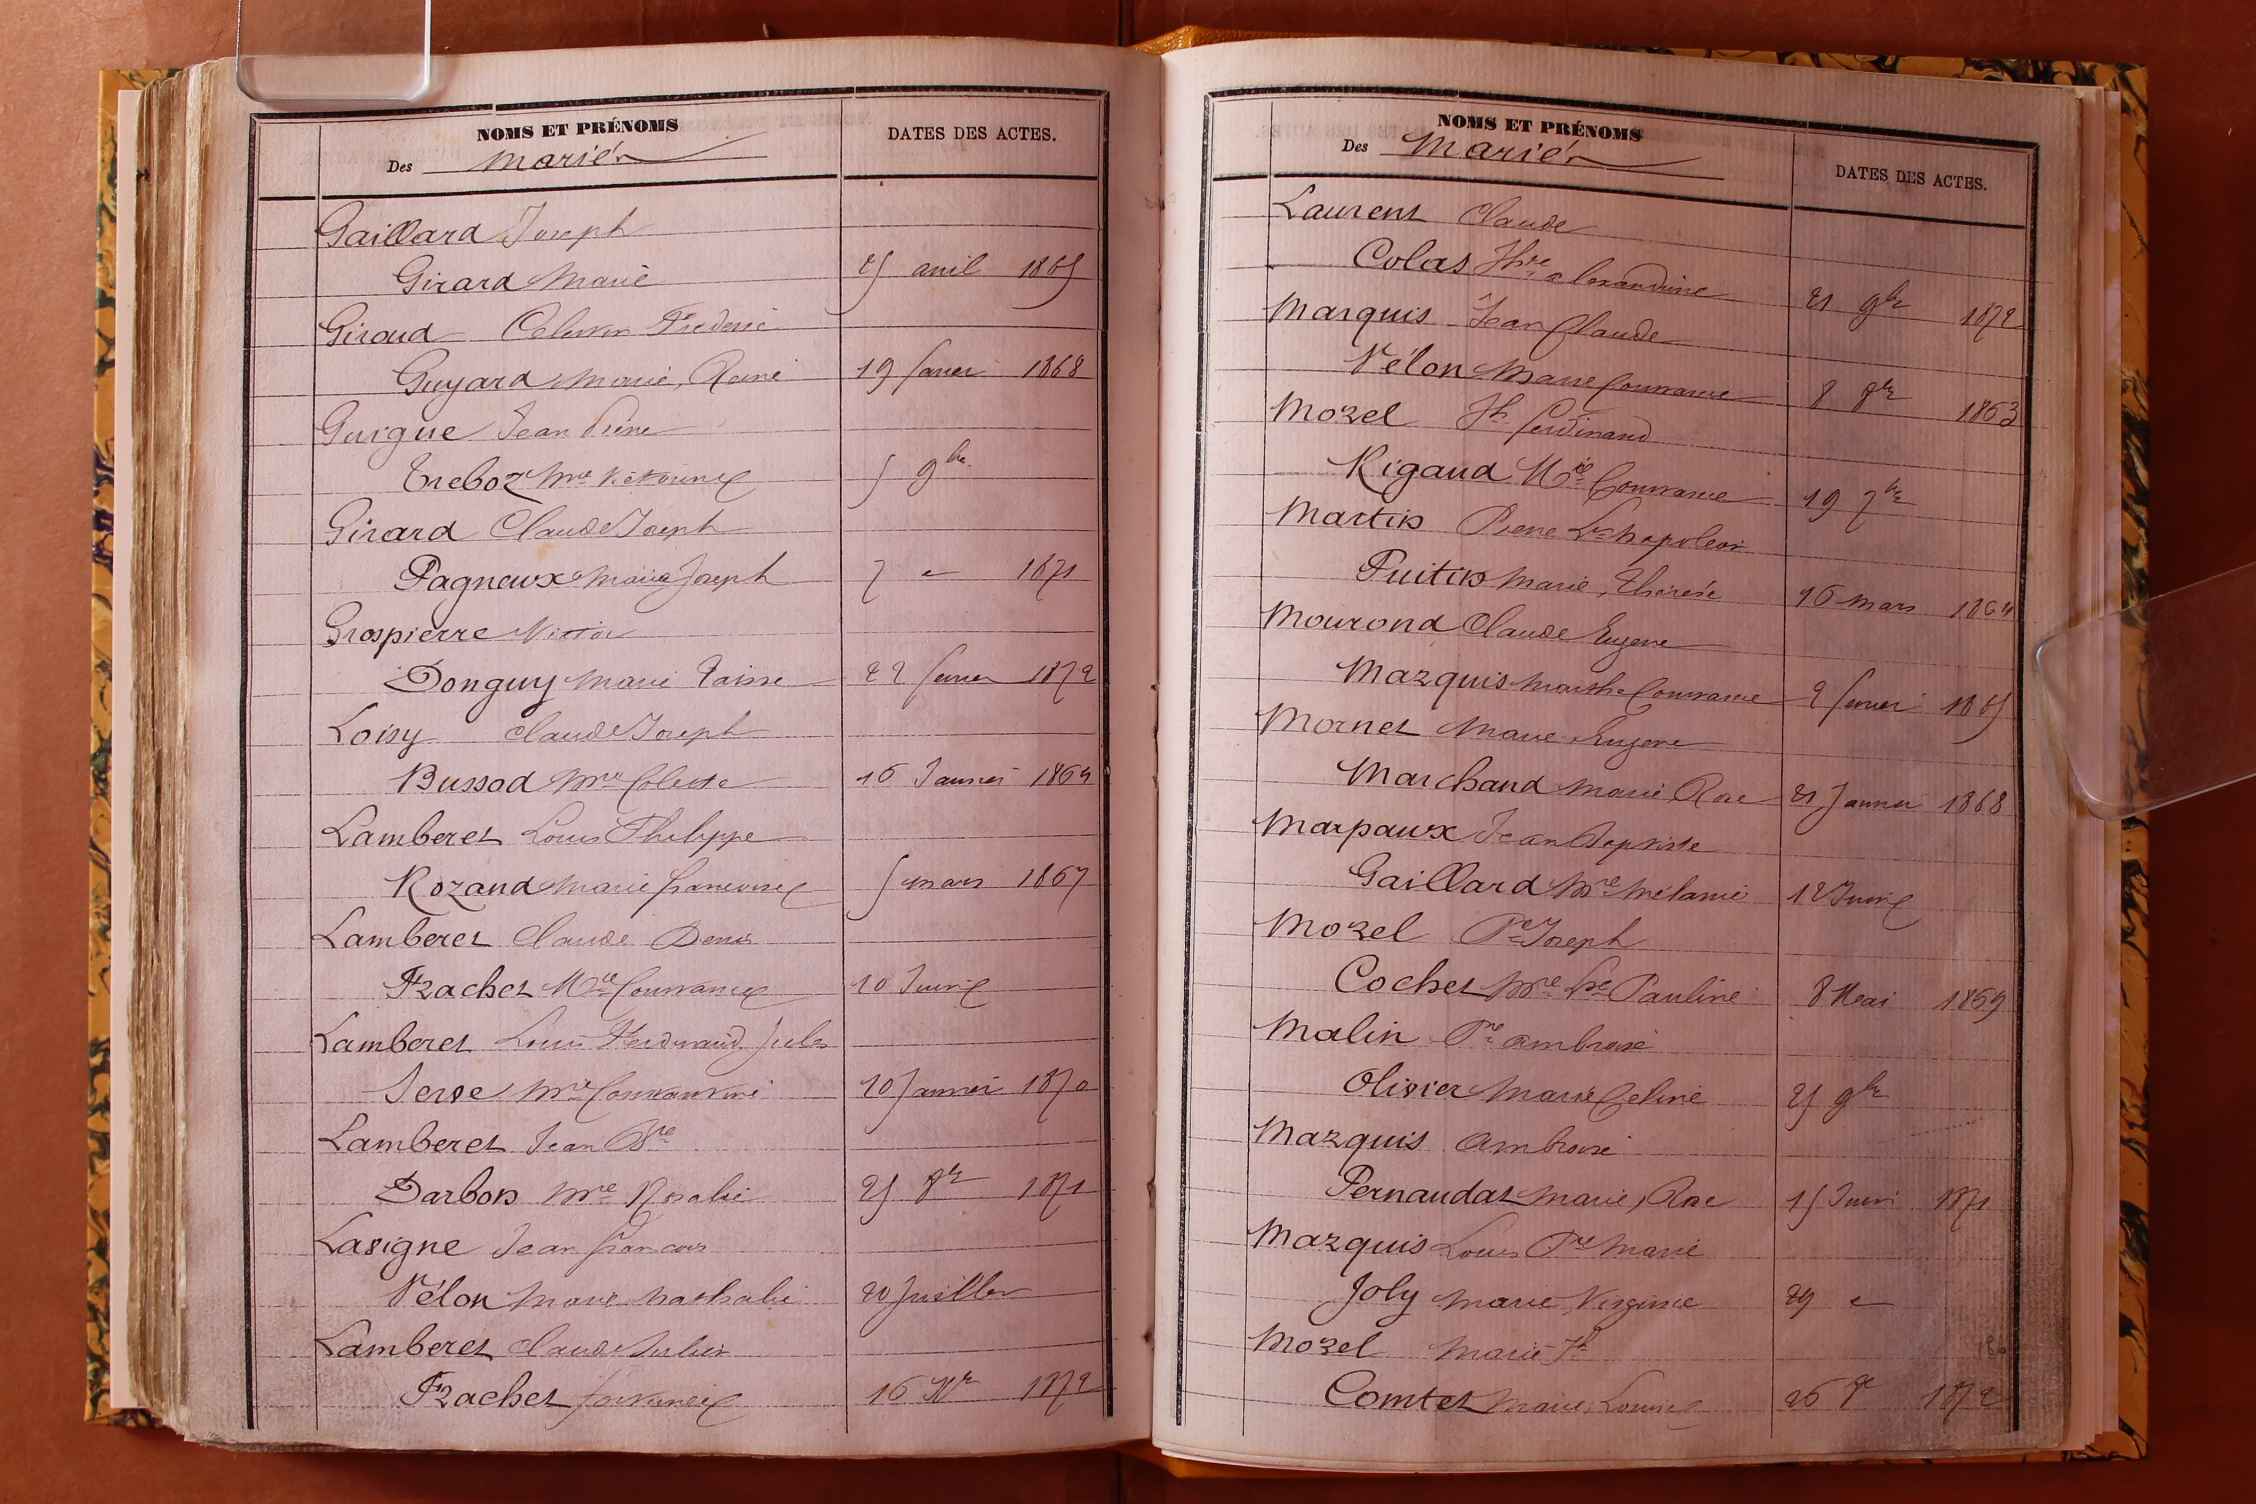 NOMS ET PRÉNOMS
Des Mariés
DATES DES ACTES.
Gaillard Joseph
Girard Marie 25 avril 1865
Giroud Frédéric
Guyard Marie Reine 19 février 1868
Guigue Jean Pierre
Treboz Mie Victorine 5 9bre
Girard Claude Joseph
Pagneux Marie Joseph 7 " 1871
Grospierre Victor
Donguy Marie 22 février 1872
Loisy Claude Joseph
Bussod Mie Celeste 16 Janvier 1864
Lamberet Louis Philippe
Rozand Marie françoise 5 mars 1867
Lamberet Claude Denis
Frachet Mie Constance 10 Juin
Lamberet Louis Ferdinand Jules
Serve Mie Constantine 10 Janvier 1870
Lamberet Jean Bte
Darbon Mie Rosalie 25 8bre 1871
Lavigne Jean françois
Vélon Marie Nathalie 20 Juillet
Lamberet Claude Julien
Frachet 16 Xbre 1872
NOMS ET PRÉNOMS
Des Mariés
DATES DES ACTES.
Laurent Claude
Colas Alexandrine 21 9bre 1872
Marquis Jean Claude
Vélon Marie Constance 8 8bre 1863
Mozel Jh ferdinand
Rigaud Mie Constance 19 7bre
Martin Pierre Ls Napoleon
Puitin Marie Thérèse 16 mars 1864
Mourond Claude Eugene
Mazquis Marthe Constance 2 février 1865
Mornet Marie Eugene
Marchand Marie Rose 21 Janvier 1868
Marpaux Jean Baptiste
Gaillard Mie Mélanie 12 Juin
Mozel Pre Joseph
Cochet Mie Lse Pauline 8 Mai 1869
Malin Pre Ambroise
Olivier Marie Celine 25 9bre
Mazquis Ambroise
Pernaudat Marie Rose 15 Juin 1871
Mazquis Louis Pre Marie
Joly Marie Virginie 29 "
Mozel Marie Jh
Comtet Marie Louise 26 1872